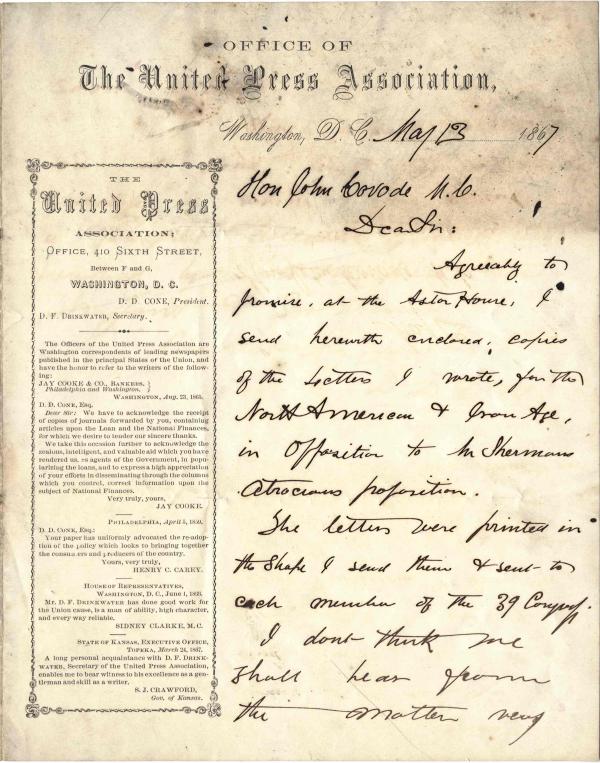 OFFICE OF
The United Press Association,
Washington, D. C. May 13 1867
THE
United Press
ASSOCIATION;
OFFICE, 410 SIXTH STREET,
Between F and G,
WASHINGTON, D. C.
D. D. CONE, President.
D. F. DRINKWATER, Secretary.
The Officers of the United Press Association are
Washington correspondents of leading newspapers
published in the principal States of the Union, and
have the honor to refer to the writers of the follow-
ing:
JAY COOKE & CO., BANKERS, }
Philadelphia and Washington. }
WASHINGTON, Aug. 23, 1865.
D. D. CONE, Esq.
Dear Sir: We have to acknowledge the receipt
of copies of journals forwarded by you, containing
articles upon the Loan and the National Finances,
for which we desire to tender our sincere thanks.
We take this occasion further to acknowledge the
zealous, intelligent, and valuable aid which you have
rendered us, as agents of the Government, in pop-
ularizing the loans, and to express a high appreciation
of your efforts in disseminating through the columns
which you control, correct information upon the
subject of National Finances.
Very truly, yours,
JAY COOKE.
PHILADELPHIA, April 5,
D. D. CONE, Esq.:
Your paper has uniformly advocated the re-adop-
tion of the policy which looks to bringing together
the consumers and producers of the country.
Yours, very truly,
HENRY C. CAREY.
HOUSE OF REPRESENTATIVES,
WASHINGTON, D. C., June 1,
Mr. D. F. DRINKWATER has done good work for
the Union cause, is a man of ability, high character,
and every way reliable.
SIDNEY CLARKE, M. C.
STATE OF KANSAS, EXECUTIVE OFFICE,
TOPEKA, March 24, 1867.
A long personal acquaintance with D. F. DRINK-
WATER, Secretary of the United Press Association,
enables me to bear witness to his excellence as a gen-
tleman and skill as a writer.
S. J. CRAWFORD,
Gov. of Kansas.
Hon John Covode M.C.
Dear Sir:
Agreeably to
promise, at the Astor House, I
send herewith enclosed, copies
of the Letters I wrote, for the
North American & Iron Age,
in Opposition to Mr Shermans
Atrocious proposition.
The letters were printed in
the shape I send them & sent to
each member of the 39 Congress.
I dont think we
shall hear from
the matter very